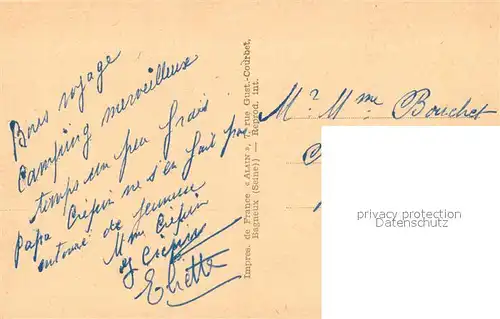 Bons voyage
Camping merveilleux
temps un peu frais
Papa Crépin ne s'en fait pas
entouré de jeunesse
Mme Crépin
et Crépin
Eliette
Impres. de France « ALAIN », 7, rue Gust.-Courbet,
Bagneux (Seine)] — Reprod. int.
Mr Mme Bouchet
privacy protection